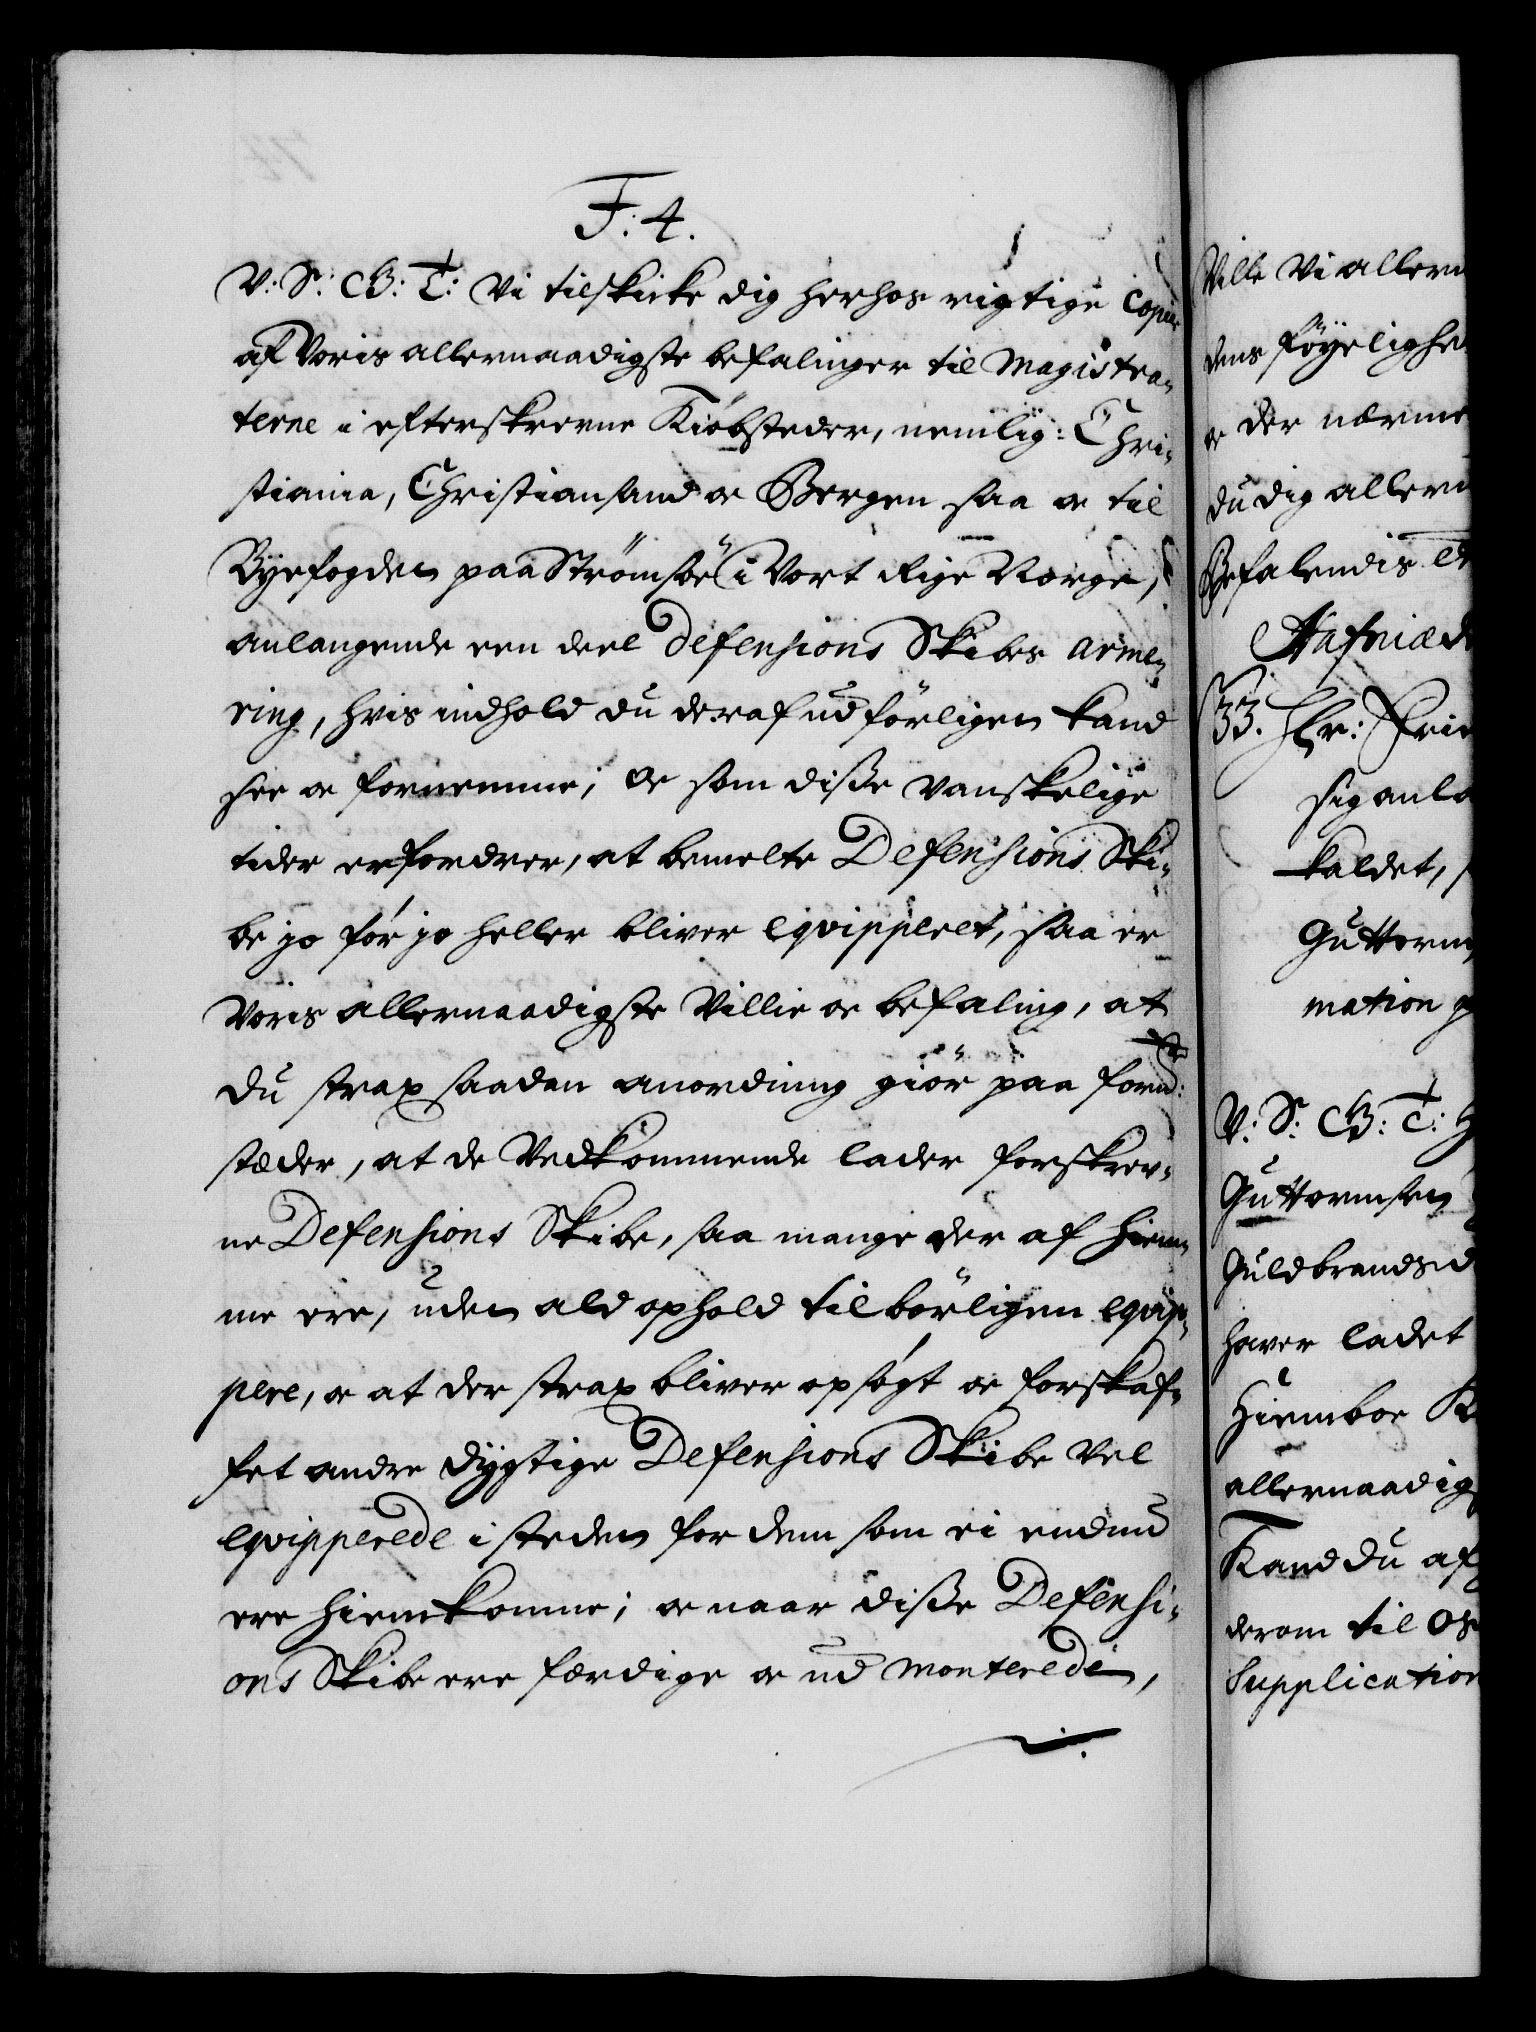 F: 4.
V: S: G: T: Vi tilskicke dig herhos rigtige Copier
af Voris allernaadigste befalinger til Magistra-
terne i efterskrevne Kiøbsteder, nemlig: Chri-
stiania, Christiansand oc Bergen saa oc til
Byefogden paa Strømsøe i Vort Rige Norge,
anlangende een deel Defensions Skibes arme-
ring, hvis indhold du deraf udførligen kand
see oc fornemme; Oc som disse vanskelige
tider erfordrer, at bemelte Defensions Ski-
be jo før jo heller bliver eqvipperet, saa er
Voris allernaadigste Villie oc befaling, at
du strax saadan anordning giør paa fornd:
stæder, at de Vedkommende lader forskrev-
ne Defensions Skibe, saa mange der af hiem-
me ere, uden ald ophold tilbørligen eqvip-
pere, oc at der strax bliver opsøgt oc forskaf-
fet andre dygtige Defensions Skibe vel
eqvipperede i steden for dem som ei endnu
ere hiemkomne; oc naar disse Defensi-
ons Skibe ere færdige oc ud monterede,
Ville Vi allern
dens føyelighe
oc der nærme
du dig allern
Befalendis
Hafniæ d
33. Hr: Frie
sig anla
kaldet,
Guttorm
mation
V: S: G: T:
Guttormsen
Guldbrandsd
haver ladet
Hiemboe
allernaadig
Kand du af
derom til Os
Supplication